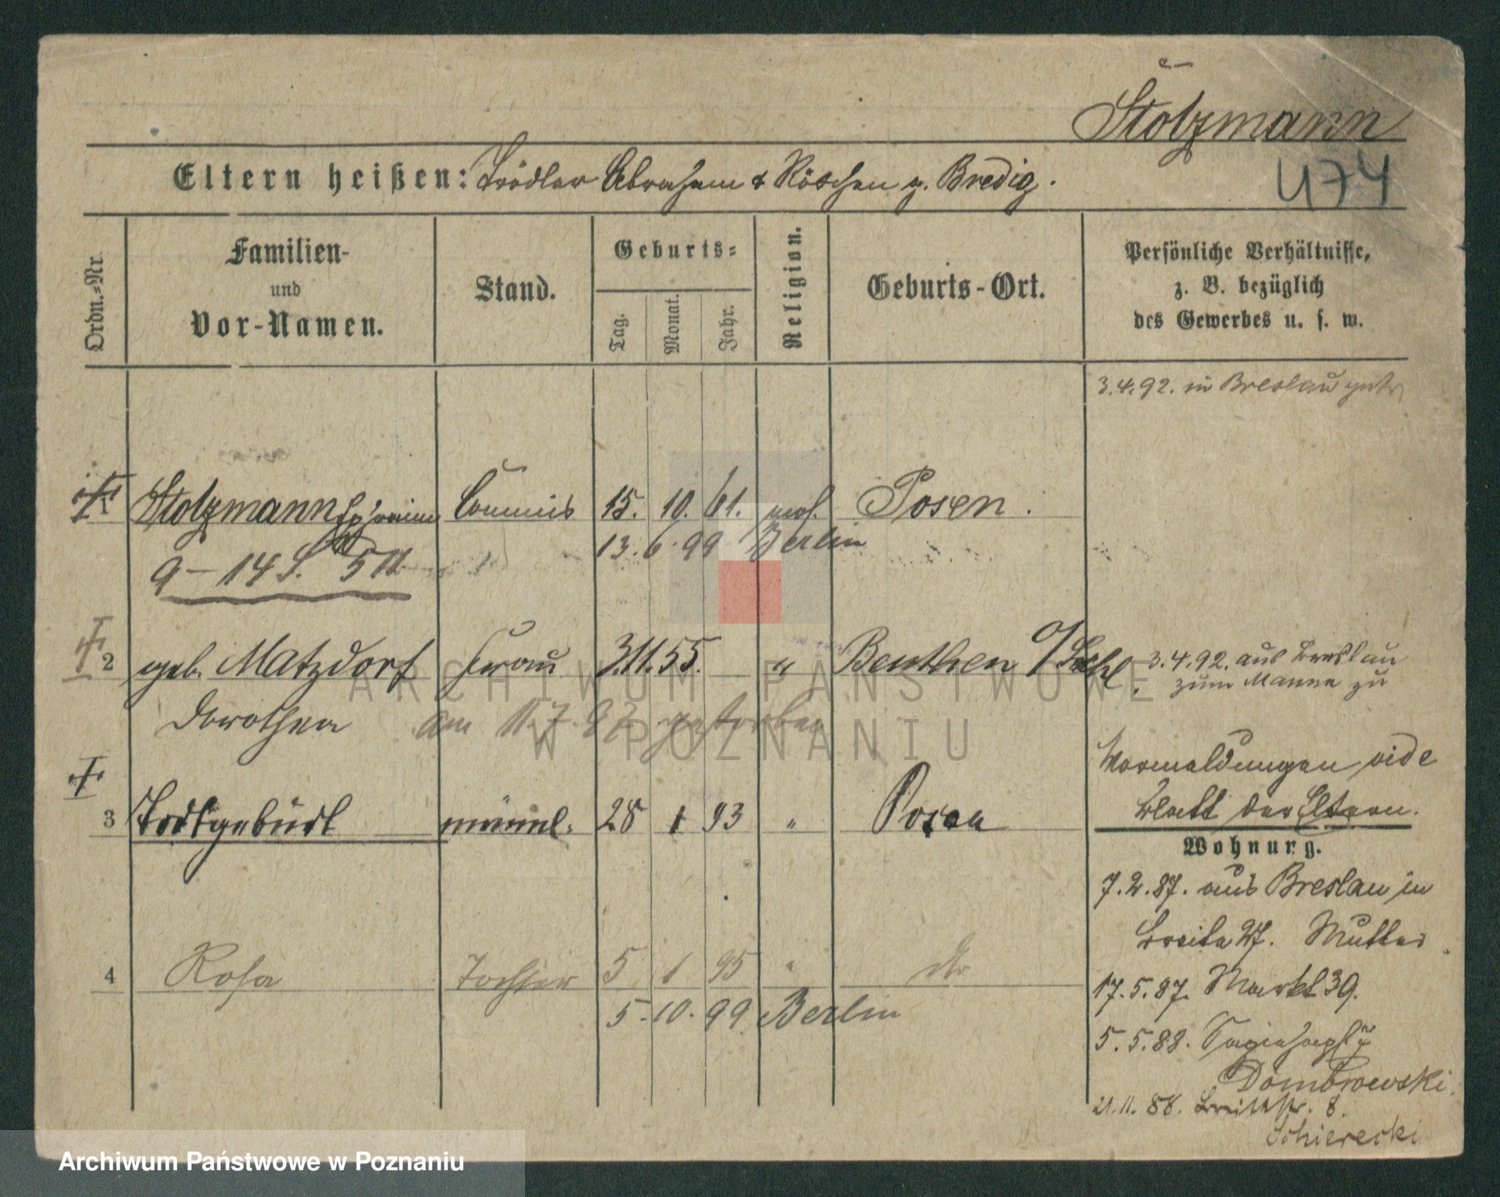 Stolzmann
474
Eltern heißen: Trödler Abraham & Röschen g. Bredig.
Ordn.-Nr.
Familien-
und
Vor-Namen.
Stand.
Geburts-
Tag.
Monat.
Jahr.
Religion.
Geburts-Ort.
Persönliche Verhältnisse,
z. B. bezüglich
des Gewerbes u. s. w.
3.4.92. in Breslau
1 Stolzmann Ephraim Commis 15. 10. 61. mos. Posen.
13. 6. 99 Berlin
9-14 S.
2 geb. Matzdorf Frau 3.11.55. " Beuthen O/Schl.
3.4.92. aus Breslau
zum Manne zu
Dorothea am 11.7.97 gestorben
3 Todtgeburt männl. 28 1 93 " Posen
Vormeldungen vide
Blatt der Eltern.
Wohnung.
7.2.87. aus Breslau in
Breite 27. Mutter
4 Rosa Tochter 5 1 95 " do
17.5.87. Markt 39.
5. 10. 99 Berlin
5.5.88.
Dombrowski.
21.11.88. Breitestr. 8.
Schierecki
ARCHIWUM PAŃSTWOWE
W POZNANIU
Archiwum Państwowe w Poznaniu